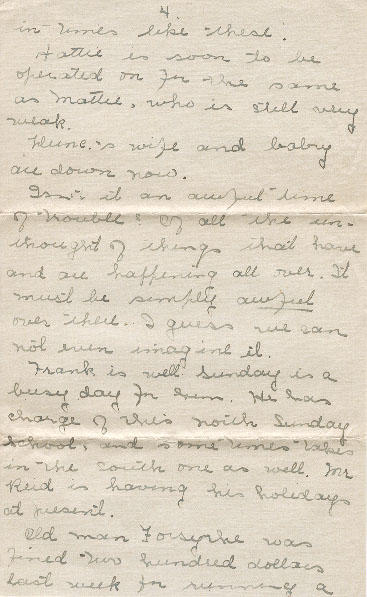 4
in times like these.
Hattie is soon to be
operated on for the same
as Mattie, who is still very
weak.
wife and baby
are down now.
Isn't it an awful time
of trouble? Of all the un-
thought of things that have
and are happening all over. It
must be simply awful
over there. I guess we can
not even imagine it.
Frank is well. Sunday is a
busy day for him. He has
charge of this north Sunday
School, and sometimes takes
in the south one as well. Mr
Reid is having his holidays
at present.
Old man Forsythe was
fined two hundred dollars
last week for running a